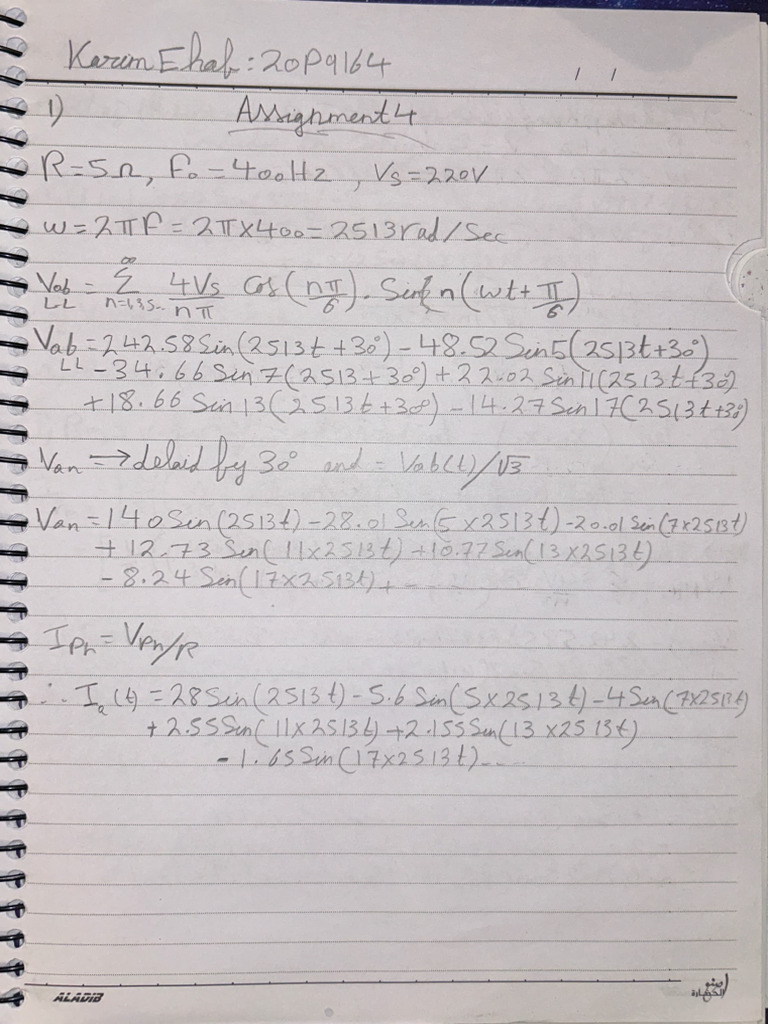 Karim Ehab: 20P9164
/ /
1) Assignment 4
R=5Ω, Fo = 400Hz , Vs=220V
w=2πF = 2π×400= 2513rad/Sec
Vab LL = ∞ Σ n=1,3,5.. 4Vs/nπ Cos(nπ/6). Sin n(wt+π/6)
Vab LL =242.58Sin(2513t+30°) - 48.52 Sin5(2513t+30°)
-34.66 Sin 7(2513+30°) +22.02 Sin11(2513t+30°)
+18.66 Sin 13(2513t+30°) -14.27Sin17(2513t+30°)
Van → delaid by 30° and = Vab(t)/√3
Van =140Sin(2513t) -28.01 Sin(5×2513t)-20.01Sin(7×2513t)
+ 12.73 Sin(11×2513t) +10.77Sin(13×2513t)
- 8.24 Sin(17×2513t)+ ---
IPh = VPh/R
∴ Ia(t) =28Sin(2513t)-5.6 Sin(5×2513t)-4Sin(7×2513t)
+2.55Sin(11×2513t)+2.155Sin(13×2513t)
- 1.65Sin(17×2513t)....
ALADIB